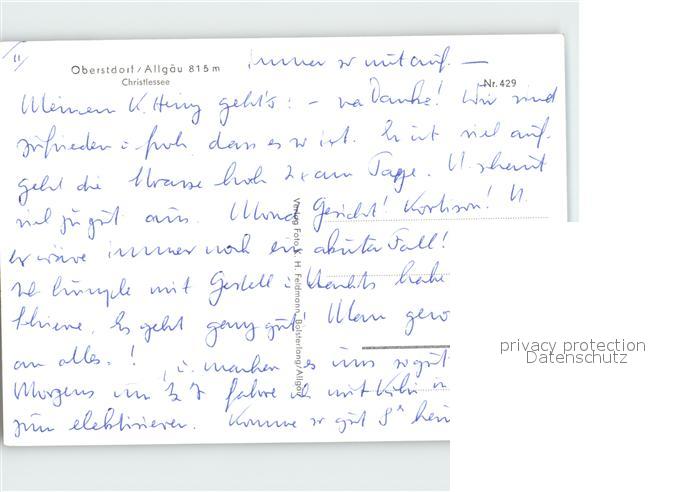 immer so mit auf. —
Oberstdorf/Allgäu 815 m
Christlessee
Nr. 429
Meinem K. Heinz geht's: – na Danke! Wir sind
zufrieden u. froh, dass es so ist. Er ist viel auf.
geht die Strasse hoch 2x am Tage. U. scheint
viel zu gut aus. Mond Gesicht! Kortison! U.
er wäre immer noch ein akuter Fall!
mit Gestell u. Nachts habe
Schiene. Es geht ganz gut! Man gewö
an alles.! u. machen es uns so gut
Morgens um 7 fahre ich mit
zum elektrisieren. Komme so gut 8 heim
Verlag Foto K. H. Feldmann, Bolsterlang/Allgäu
privacy protection
Datenschutz